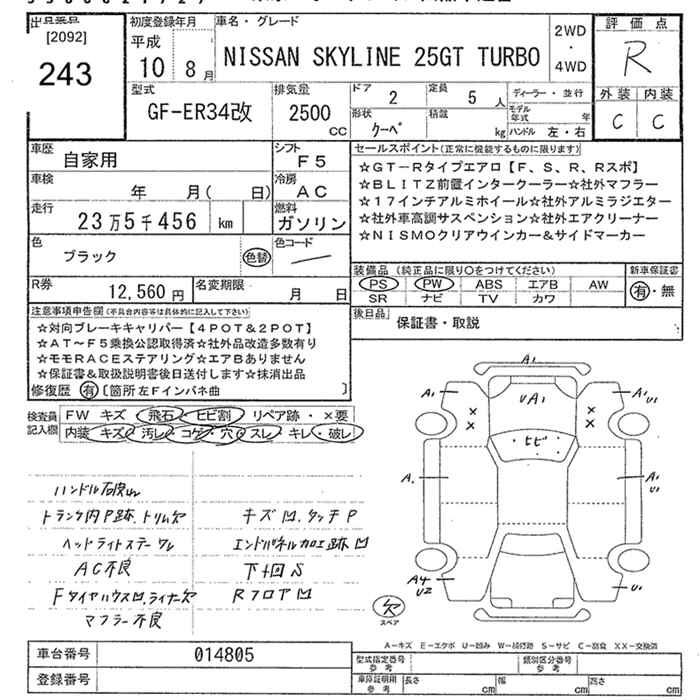 出品業点
[2092]
243
初度登録年月
平成
10 8月
車名・グレード
NISSAN SKYLINE 25GT TURBO
2WD
・
4WD
評価点
R
外装 内装
C C
型式
GF-ER34改
排気量
2500
CC
ドア 2
定員 5人
形状 クーペ
積載 kg
ディーラー・並行
モデル年式 年
ハンドル 左・右
車歴 自家用
シフト F5
車検 年 月( 日)
冷房 AC
走行 23万5千456 km
燃料 ガソリン
色 ブラック 色替
色コード
R券 12,560円
名変期限 月 日
セールスポイント(正常に機能するものに限ります)
☆GT-Rタイプエアロ【F、S、R、Rスポ】
☆BLITZ前置インタークーラー☆社外マフラー
☆17インチアルミホイール☆社外アルミラジエター
☆社外車高調サスペンション☆社外エアクリーナー
☆NISMOクリアウインカー&サイドマーカー
装備品(純正品に限り○をつけてください)
PS PW ABS エアB AW
SR ナビ TV カワ
新車保証書
有・無
後日品 保証書・取説
注意事項申告欄(不具合内容等は具体的に記入して下さい)
☆対向ブレーキキャリパー【4POT&2POT】
☆AT～F5乗換公認取得済☆社外品改造多数有り
☆モモRACEステアリング☆エアBありません
☆保証書&取扱説明書後日送付します☆抹消出品
修復歴 有 [箇所 左Fインパネ曲 ]
検査員記入欄
FW キズ 飛石・ヒビ割 リペア跡・×要
内装 キズ・汚レ・コゲ・穴・スレ・キレ・破レ
トランク内P跡、トリム欠
キズ凹、タッチP
ヘッドライトステーワレ
エンドパネル加工跡凹
AC不良
下廻S
Fタイヤハウス凹、ライナー欠
Rフロア凹
マフラー不良
A1
UA1
A1
A1
U1
ヒビ
A1
A1
U1
A4
U2
U1
欠
スペア
A-キズ E-エクボ U-凹み W-補修跡 S-サビ C-腐食 XX-交換済
車台番号 014805
登録番号
型式指定番号参考
類別区分番号参考
車庫証明用参考
長さ cm 幅 cm 高さ cm